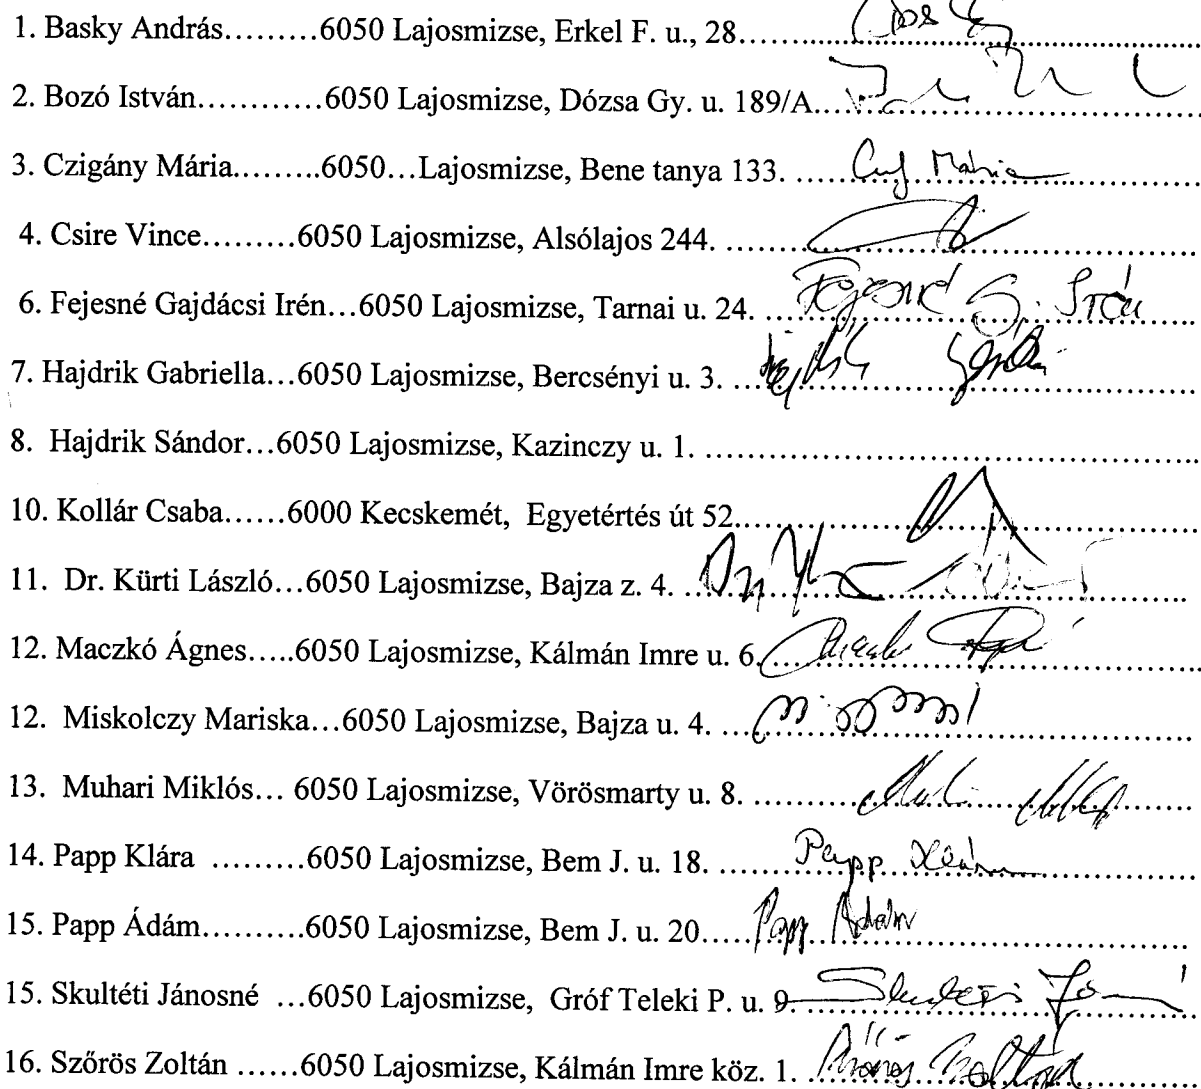 1. Basky András.........6050 Lajosmizse, Erkel F. u., 28..........
2. Bozó István............6050 Lajosmizse, Dózsa Gy. u. 189/A....
3. Czigány Mária.........6050...Lajosmizse, Bene tanya 133. ..... Mária
4. Csire Vince.........6050 Lajosmizse, Alsólajos 244. ..........
6. Fejesné Gajdácsi Irén...6050 Lajosmizse, Tarnai u. 24. Fejesné G. Irén
7. Hajdrik Gabriella...6050 Lajosmizse, Bercsényi u. 3. ..........
8. Hajdrik Sándor...6050 Lajosmizse, Kazinczy u. 1. ..........
10. Kollár Csaba......6000 Kecskemét, Egyetértés út 52..........
11. Dr. Kürti László...6050 Lajosmizse, Bajza z. 4. ..........
12. Maczkó Ágnes.....6050 Lajosmizse, Kálmán Imre u. 6..........
12. Miskolczy Mariska...6050 Lajosmizse, Bajza u. 4. ..........
13. Muhari Miklós... 6050 Lajosmizse, Vörösmarty u. 8. ..........
14. Papp Klára .........6050 Lajosmizse, Bem J. u. 18. ..... Papp Klára
15. Papp Ádám..........6050 Lajosmizse, Bem J. u. 20..... Papp Ádám
15. Skultéti Jánosné ...6050 Lajosmizse, Gróf Teleki P. u. 9. ..........
16. Szőrös Zoltán ......6050 Lajosmizse, Kálmán Imre köz. 1. Szőrös Zoltán